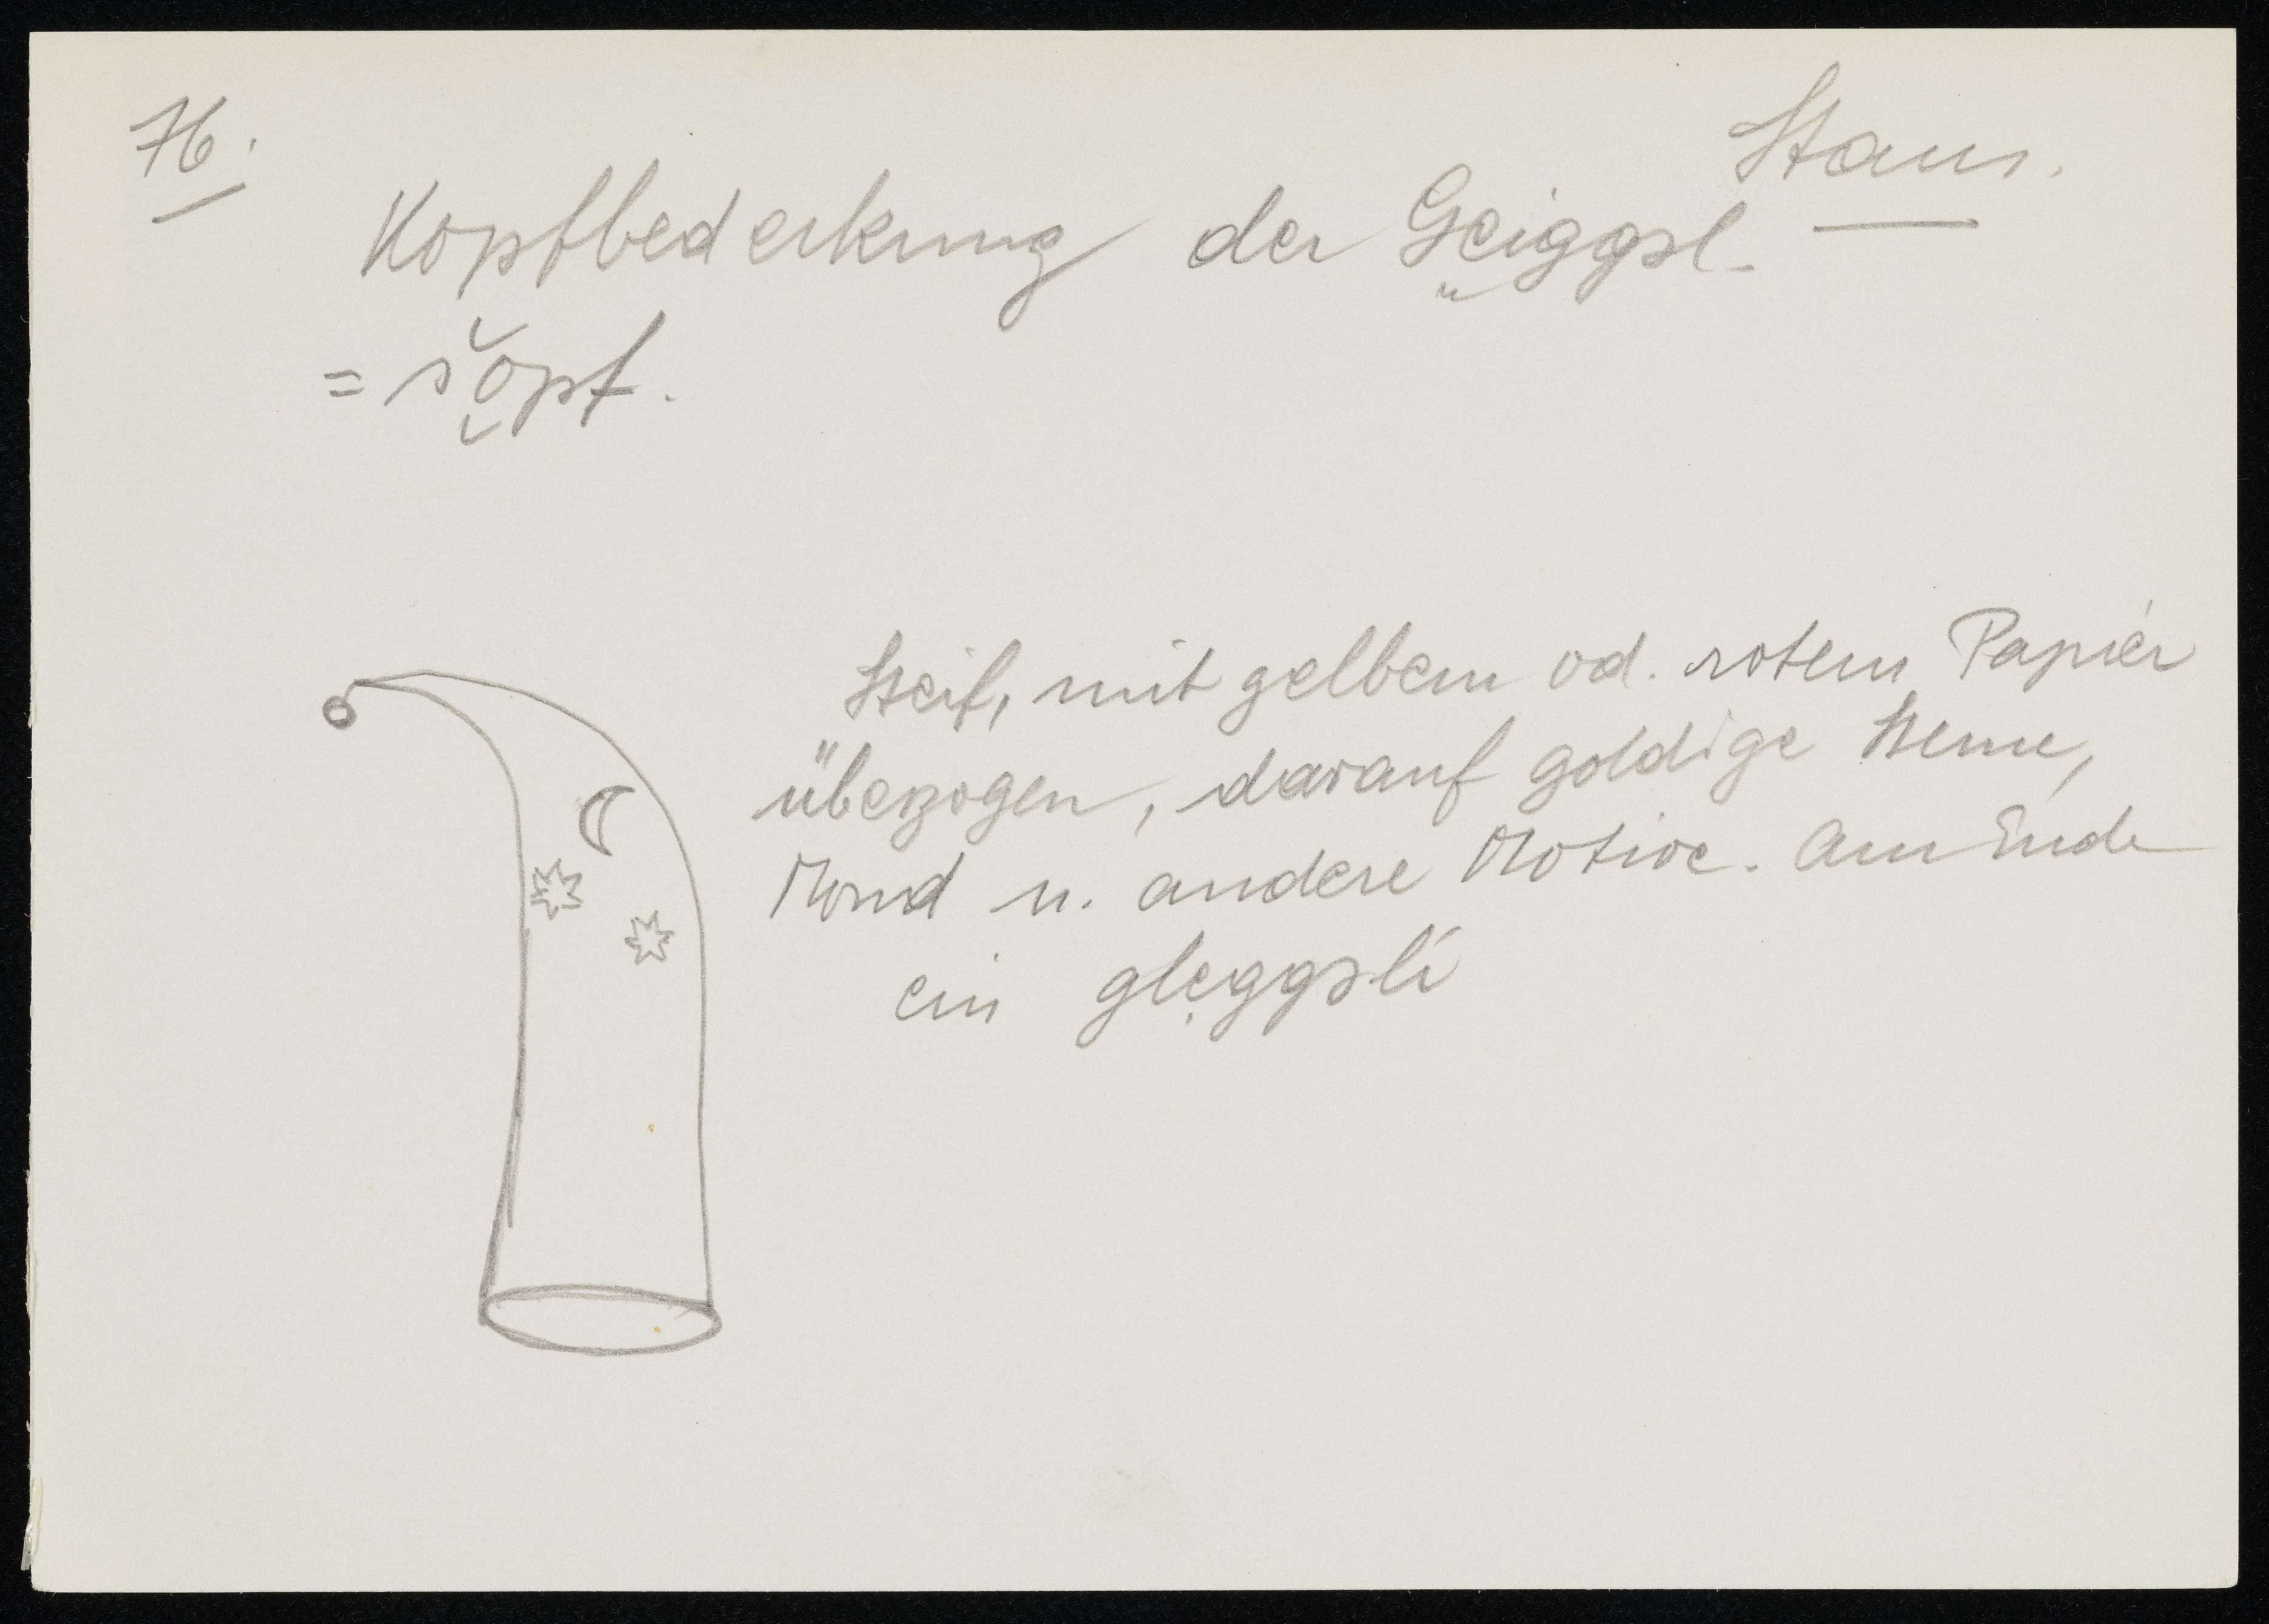 76.
Stans.
Kopfbedeckung der Geiggel.
= šopf.
Steif, mit gelbem od. rotem Papier
überzogen, darauf goldige Sterne,
Mond u. andere Motive. Am Ende
ein glẹggli